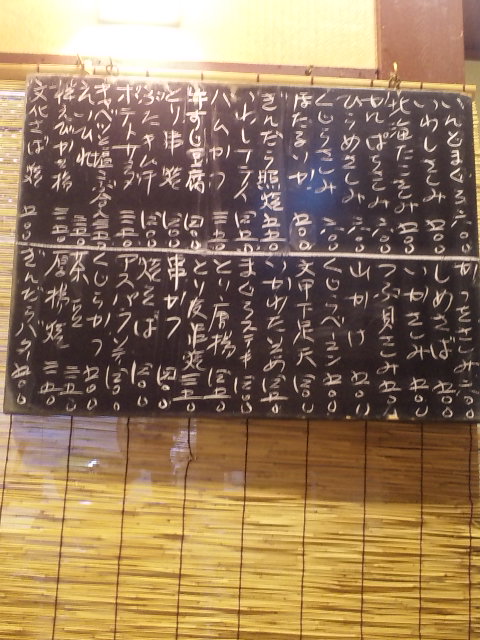 いんどまぐろ 六〇〇
いわしさしみ 五〇〇
北海たこさしみ 六〇〇
かんぱちさしみ 六〇〇
ひらめさしみ 六〇〇
くじらさしみ 六〇〇
ほたるいか 五〇〇
ぎんだら照焼 五五〇
いわしフライ 四五〇
ハムかつ 三五〇
牛すじ豆腐 四〇〇
とり串焼
ぶたキムチ
ポテトサラダ 三五〇
キャベツと塩こぶ合え 三五〇
えいひれ 三五〇
桜えびかき揚 三五〇
文化さば焼 五〇〇
かつをさしみ 六〇〇
しめさば 五〇〇
いかさしみ 五〇〇
つぶ貝さしみ 五五〇
山かけ 五〇〇
くじらベーコン 五〇〇
文甲下足天
いかわたいため 四五〇
まぐろステーキ
とり唐揚
とり皮串焼 三五〇
串かつ 四〇〇
焼そば
アスパラ
くじらかつ 五〇〇
茶豆 三五〇
厚揚焼 三五〇
ぎんだらバター 五〇〇